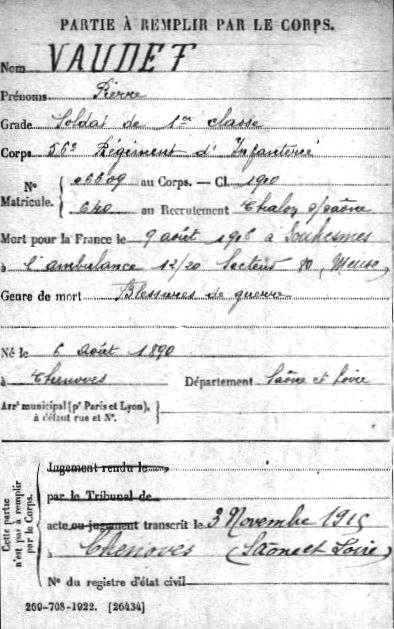 PARTIE À REMPLIR PAR LE CORPS.
Nom VAUDET
Prénoms Pierre
Grade Soldat de 1re classe
Corps 56e Régiment d'Infanterie
No Matricule. { 06609 au Corps. — Cl. 1910
640 au Recrutement Chalon s/saône
Mort pour la France le 9 août 1916 à Souhesmes
à l'ambulance 12/20 Secteur 80 (Meuse)
Genre de mort Blessures de guerre
Né le 6 Août 1890
à Chenoves Département Saône et Loire
Arrt municipal (pr Paris et Lyon),
à défaut rue et No.
Cette partie n'est pas à remplir par le Corps.
Jugement rendu le
par le Tribunal de
acte ou jugement transcrit le 3 Novembre
à Chenoves (Saône et Loire)
No du registre d'état civil
260-708-1922. [26434]